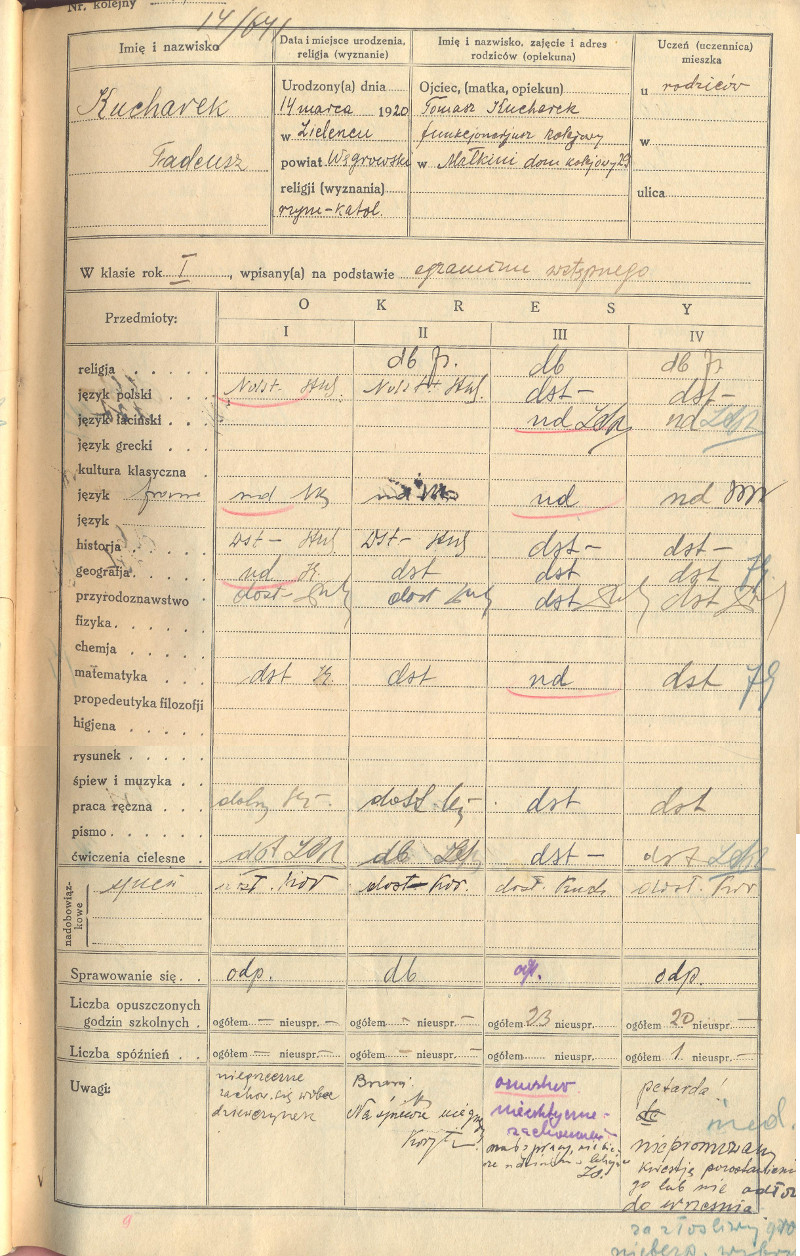 Nr. kolejny 14/641
Imię i nazwisko
Data i miejsce urodzenia, religja (wyznanie)
Imię i nazwisko, zajęcie i adres rodziców (opiekuna)
Uczeń (uczennica) mieszka
Kucharek
Tadeusz
Urodzony(a) dnia
14 marca 1920
w Zielencu
powiat Węgrowski
religji (wyznania)
rzym-katol.
Ojciec, (matka, opiekun)
Tomasz Kucharek
funkcjonarjusz kolejowy
w Małkini dom kolejowy 23
u rodziców
w
ulica
W klasie rok I, wpisany(a) na podstawie egzaminu wstępnego
Przedmioty:
O K R E S Y
I II III IV
religja db db db
język polski dst — dst —
język łaciński nd nd
język grecki
kultura klasyczna
język franc nd nd nd nd
język
historja Dst — Dst — dst — dst —
geografja nd dst dst dst
przyrodoznawstwo dost — dost dst dst
fizyka
chemja
matematyka dst dst nd dst
propedeutyka filozofji
higjena
rysunek
śpiew i muzyka
praca ręczna dost dst dst
pismo
ćwiczenia cielesne dst db dst — dst
nadobowiązkowe
śpiew dost. Kor dost. dost. Kor
Sprawowanie się odp. db odp. odp.
Liczba opuszczonych godzin szkolnych
ogółem — nieuspr. — ogółem — nieuspr. — ogółem 23 nieuspr. ogółem 20 nieuspr. —
Liczba spóźnień ogółem — nieuspr. — ogółem — nieuspr. — ogółem nieuspr. ogółem 1 nieuspr. —
Uwagi:
niegrzeczne
zachow. się wobec
dziewczynek
Na śpiewie
nietaktyczne
zachowanie
petarda!
nied.
niepromowany
kwestja pozostawienia
go lub nie
do września
za złośliwy
9